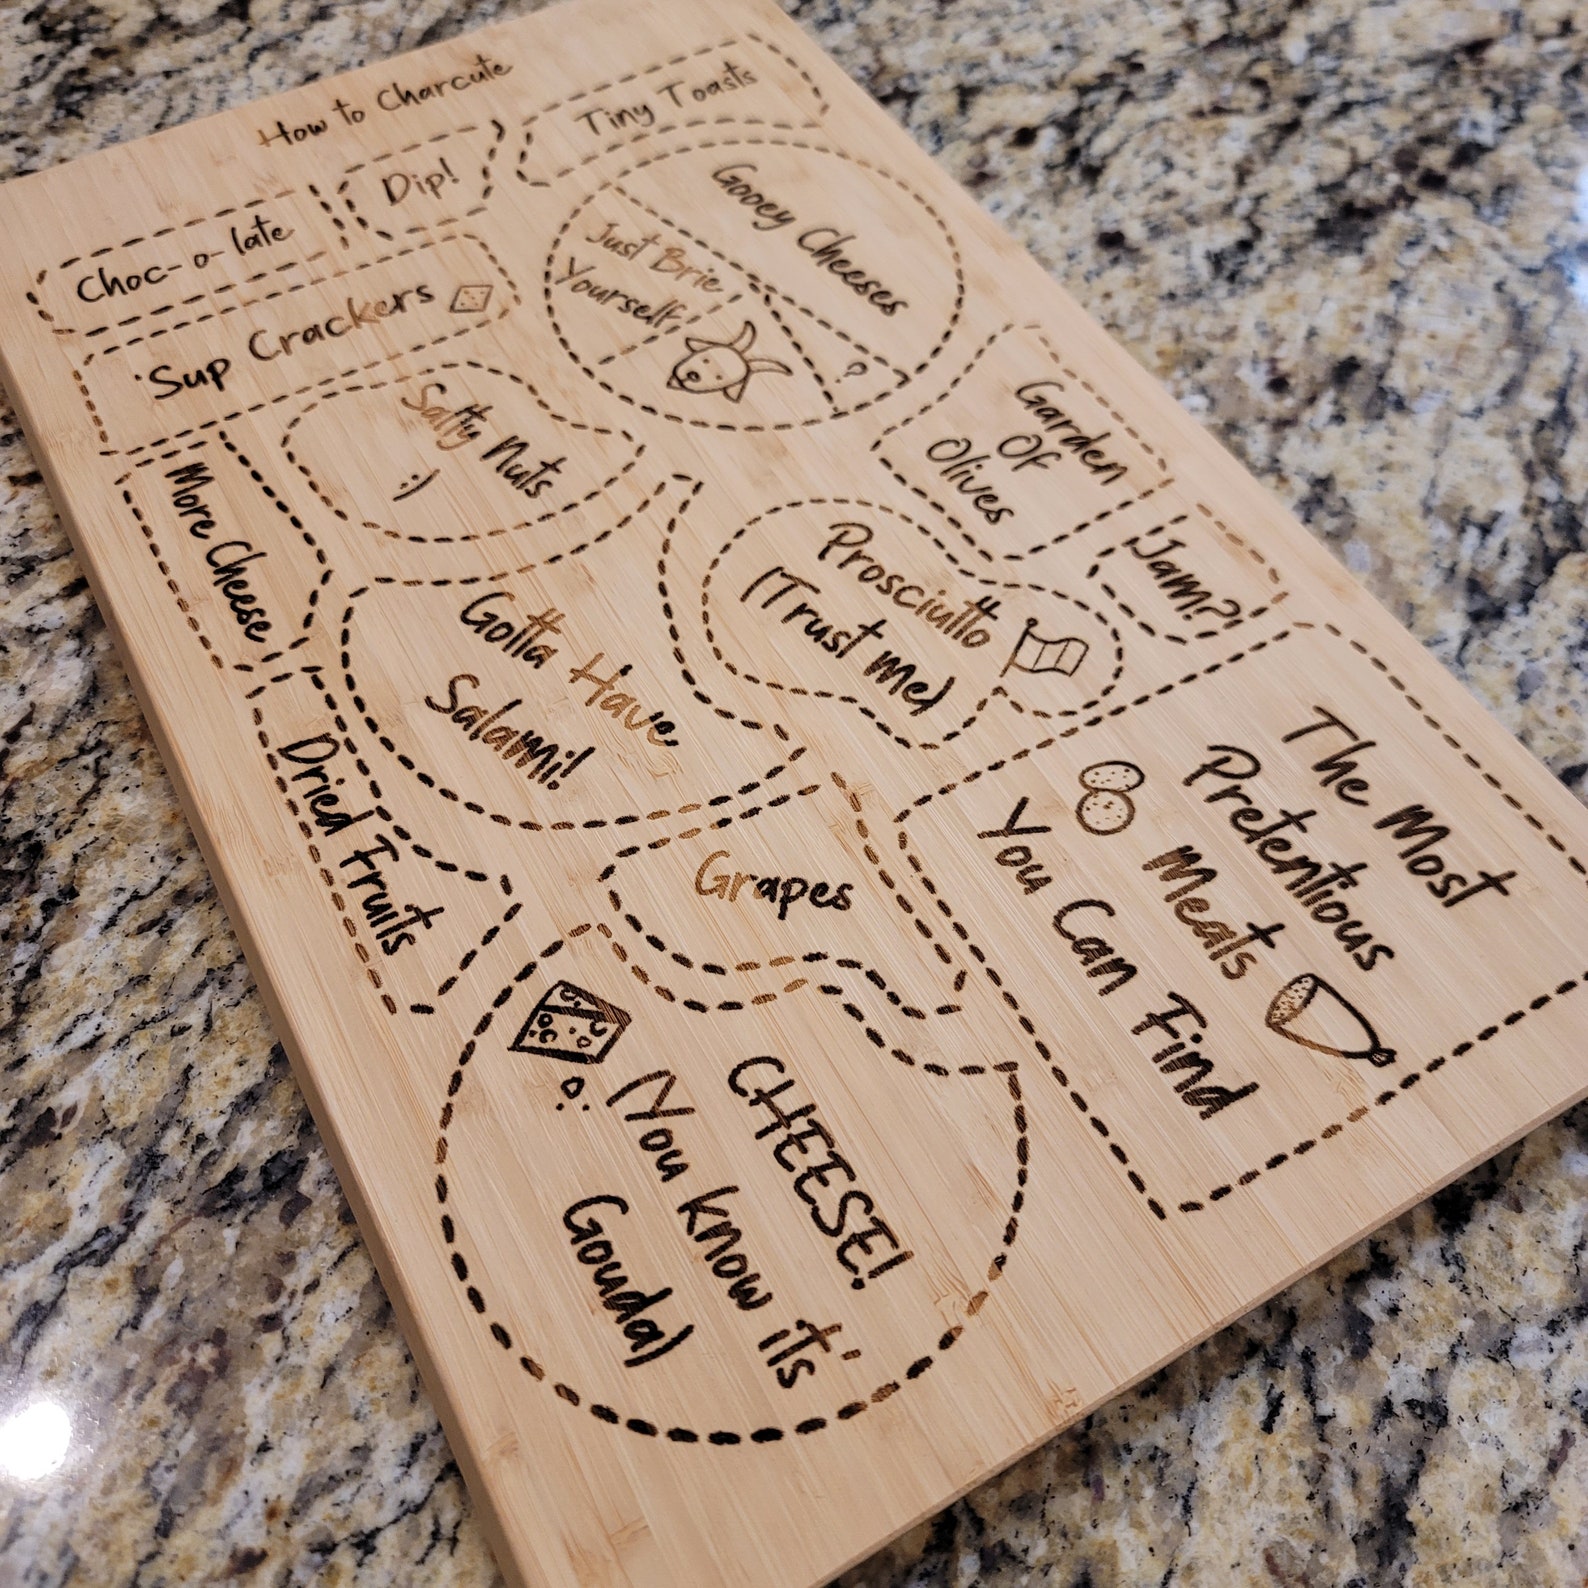 How to Charcute
Choc-o-late
Dip!
Tiny Toasts
'Sup Crackers
Just Brie
Yourself
Gooey Cheeses
?
Salty Nuts
:)
Garden
Of
Olives
More Cheese
Prosciutto
(Trust me)
Jam?!
Gotta Have
Salami!
Dried Fruits
Grapes
The Most
Pretentious
Meats
You Can Find
CHEESE!
(You know it's
Gouda)